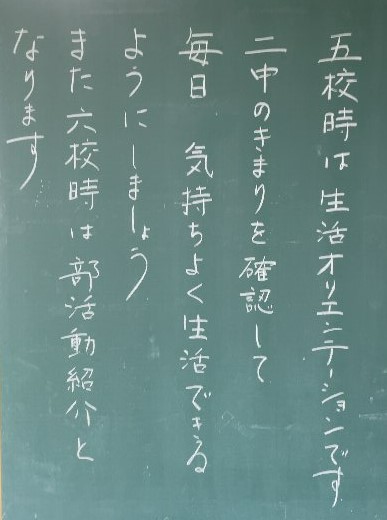 五校時は生活オリエンテーションです
二中のきまりを確認して
毎日　気持ちよく生活できる
ようにしましょう
また六校時は部活動紹介と
なります